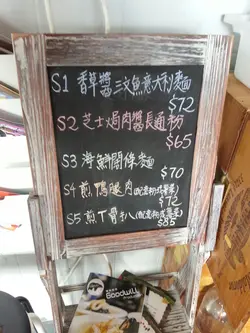 S1 香草醬三文魚意大利麵
$72
S2 芝士焗肉醬長通粉
$65
S3 海鮮闊條麵
$70
S4 煎鴨腿肉(配意粉或薯菜)
$72
S5 煎T骨扒(配意粉或薯菜)
$85
Goodwill